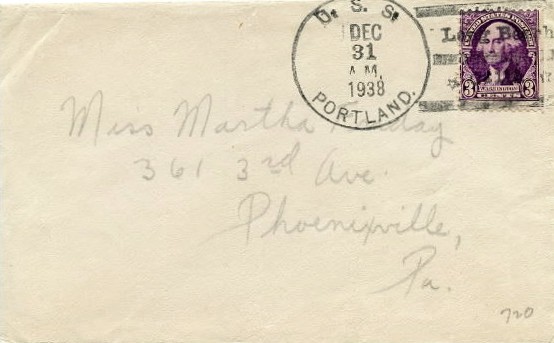 U. S. S.
DEC
31
A M.
1938
PORTLAND.
Long Beach
UNITED STATES POSTAGE
WASHINGTON
3 CENTS 3
Miss Martha
361 3rd Ave.
Phoenixville,
Pa.
720